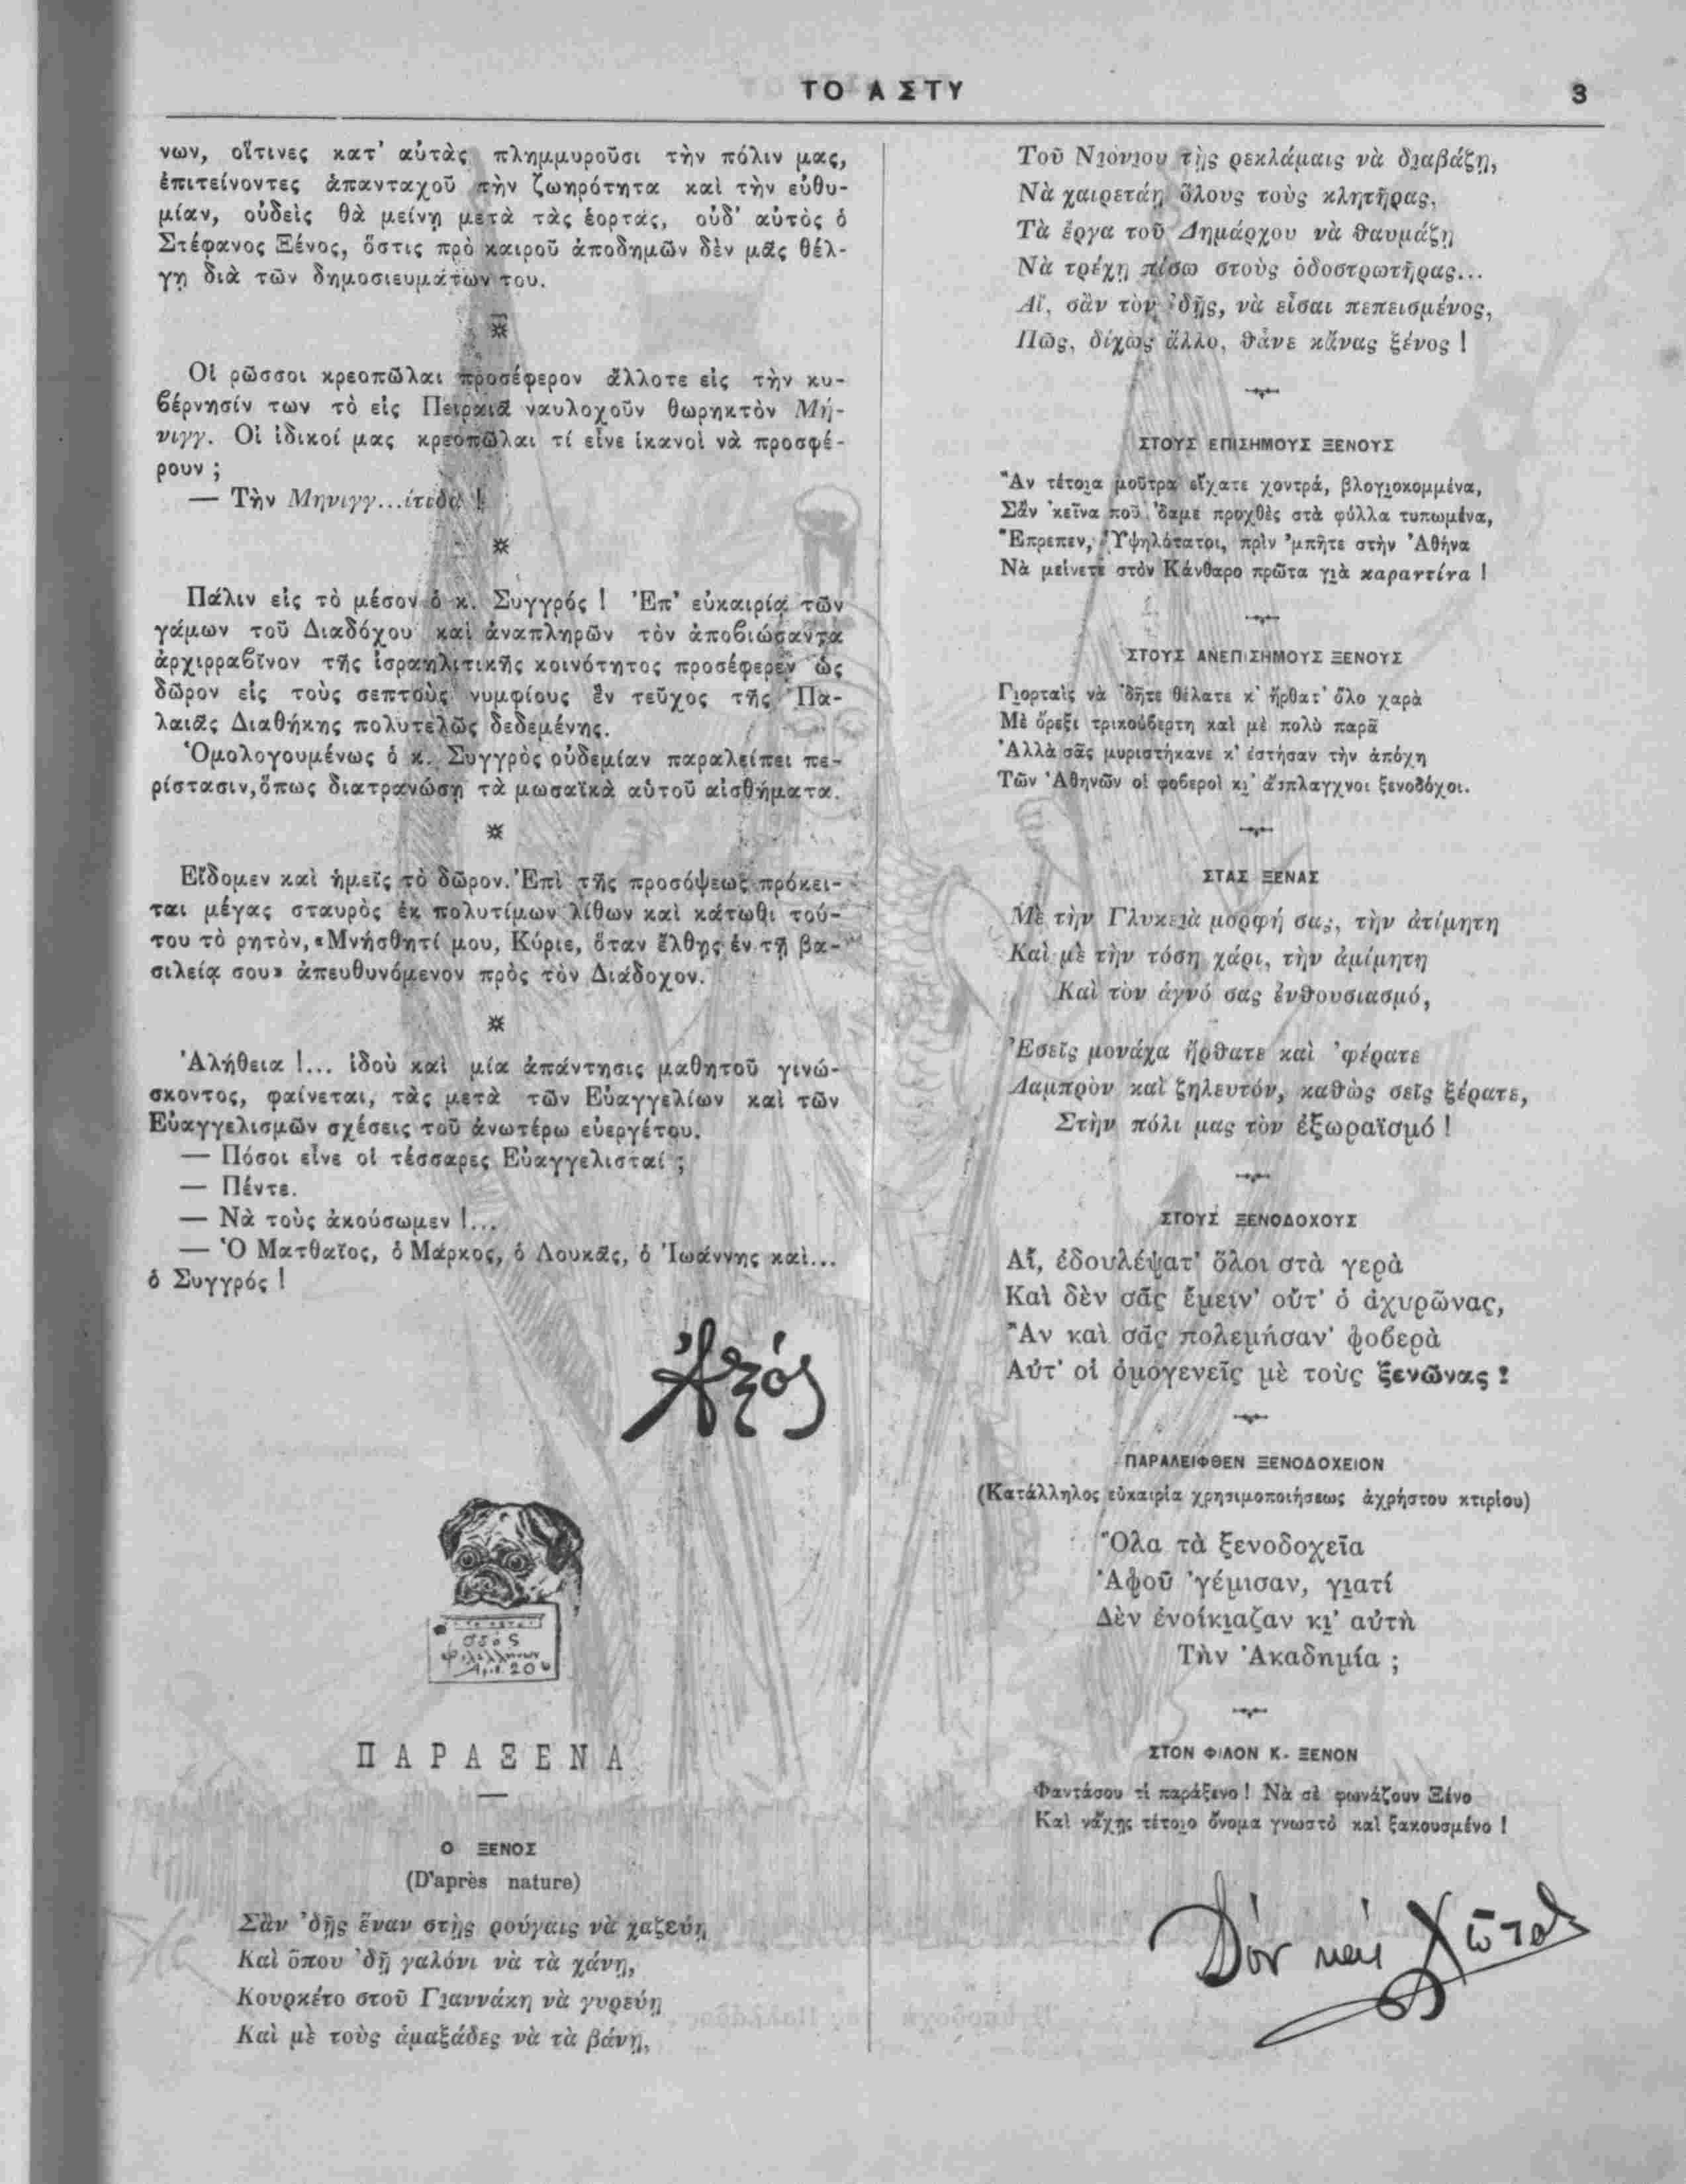 ΤΟ ΑΣΤΥ
3
νων, οἵτινες κατ' αὐτὰς πλημμυροῦσι τὴν πόλιν μας,
ἐπιτείνοντες ἁπανταχοῦ τὴν ζωηρότητα καὶ τὴν εὐθυ-
μίαν, οὐδεὶς θὰ μείνῃ μετὰ τὰς ἑορτάς, οὐδ' αὐτὸς ὁ
Στέφανος Ξένος, ὅστις πρὸ καιροῦ ἀποδημῶν δὲν μᾶς θέλ-
γῃ διὰ τῶν δημοσιευμάτων του.
Οἱ ρῶσσοι κρεοπῶλαι προσέφερον ἄλλοτε εἰς τὴν κυ-
βέρνησίν των τὸ εἰς Πειραιᾶ ναυλοχοῦν θωρηκτὸν Μή-
νιγγ. Οἱ ἰδικοί μας κρεοπῶλαι τί εἶνε ἱκανοὶ νὰ προσφέ-
ρουν ;
— Τὴν Μηνιγγ...ίτιδα !
Πάλιν εἰς τὸ μέσον ὁ κ. Συγγρός ! Ἐπ' εὐκαιρίᾳ τῶν
γάμων τοῦ Διαδόχου καὶ ἀναπληρῶν τὸν ἀποβιώσαντα
ἀρχιρραβῖνον τῆς ἰσραηλιτικῆς κοινότητος προσέφερεν ὡς
δῶρον εἰς τοὺς σεπτοὺς νυμφίους ἓν τεῦχος τῆς Πα-
λαιᾶς Διαθήκης πολυτελῶς δεδεμένης.
Ὁμολογουμένως ὁ κ. Συγγρὸς οὐδεμίαν παραλείπει πε-
ρίστασιν, ὅπως διατρανώσῃ τὰ μωσαϊκὰ αὑτοῦ αἰσθήματα.
Εἴδομεν καὶ ἡμεῖς τὸ δῶρον. Ἐπὶ τῆς προσόψεως πρόκει-
ται μέγας σταυρὸς ἐκ πολυτίμων λίθων καὶ κάτωθι τού-
του τὸ ρητὸν, «Μνήσθητί μου, Κύριε, ὅταν ἔλθῃς ἐν τῇ βα-
σιλείᾳ σου» ἀπευθυνόμενον πρὸς τὸν Διάδοχον.
Ἀλήθεια !... ἰδοὺ καὶ μία ἀπάντησις μαθητοῦ γινώ-
σκοντος, φαίνεται, τὰς μετὰ τῶν Εὐαγγελίων καὶ τῶν
Εὐαγγελισμῶν σχέσεις τοῦ ἀνωτέρω εὐεργέτου.
— Πόσοι εἶνε οἱ τέσσαρες Εὐαγγελισταί ;
— Πέντε.
— Νὰ τοὺς ἀκούσωμεν !...
— Ὁ Ματθαῖος, ὁ Μάρκος, ὁ Λουκᾶς, ὁ Ἰωάννης καὶ...
ὁ Συγγρός !
ὁδὸς
Φιλελλήνων
20
ΠΑΡΑΞΕΝΑ
Ο ΞΕΝΟΣ
(D'après nature)
Σὰν 'δῇς ἕναν στῂς ρούγαις νὰ χαζεύῃ
Καὶ ὅπου 'δῇ γαλόνι νὰ τὰ χάνῃ,
Κουρκέτο στοῦ Γιαννάκη νὰ γυρεύῃ
Καὶ μὲ τοὺς ἁμαξάδες νὰ τὰ βάνῃ,
Τοῦ Νιόνιου τῂς ρεκλάμαις νὰ διαβάζῃ,
Νὰ χαιρετάῃ ὅλους τοὺς κλητῆρας,
Τὰ ἔργα τοῦ Δημάρχου νὰ θαυμάζῃ
Νὰ τρέχῃ πίσω στοὺς ὁδοστρωτῆρας...
Αἴ, σὰν τὸν 'δῇς, νὰ εἶσαι πεπεισμένος,
Πῶς, δίχως ἄλλο, θἆνε κἄνας ξένος !
ΣΤΟΥΣ ΕΠΙΣΗΜΟΥΣ ΞΕΝΟΥΣ
Ἂν τέτοια μοῦτρα εἴχατε χοντρά, βλογιοκομμένα,
Σὰν 'κεῖνα ποῦ 'δαμε προχθὲς στὰ φύλλα τυπωμένα,
Ἔπρεπεν, Ὑψηλότατοι, πρὶν 'μπῆτε στὴν Ἀθήνα
Νὰ μείνετε στὸν Κάνθαρο πρῶτα γιὰ καραντίνα !
ΣΤΟΥΣ ΑΝΕΠΙΣΗΜΟΥΣ ΞΕΝΟΥΣ
Γιορταὶς νὰ 'δῆτε θέλατε κ' ἤρθατ' ὅλο χαρὰ
Μὲ ὄρεξι τρικούβερτη καὶ μὲ πολὺ παρᾶ
Ἀλλὰ σᾶς μυριστήκανε κ' ἐστήσαν τὴν ἀπόχη
Τῶν Ἀθηνῶν οἱ φοβεροὶ κι' ἄσπλαγχνοι ξενοδόχοι.
ΣΤΑΣ ΞΕΝΑΣ
Μὲ τὴν Γλυκειὰ μορφή σας, τὴν ἀτίμητη
Καὶ μὲ τὴν τόση χάρι, τὴν ἀμίμητη
Καὶ τὸν ἁγνό σας ἐνθουσιασμό,
Ἐσεῖς μονάχα ἤρθατε καὶ 'φέρατε
Λαμπρὸν καὶ ζηλευτόν, καθὼς σεῖς ξέρατε,
Στὴν πόλι μας τὸν ἐξωραϊσμό !
ΣΤΟΥΣ ΞΕΝΟΔΟΧΟΥΣ
Αἴ, ἐδουλέψατ' ὅλοι στὰ γερὰ
Καὶ δὲν σᾶς ἔμειν' οὔτ' ὁ ἀχυρῶνας,
Ἂν καὶ σᾶς πολεμήσαν' φοβερὰ
Αὐτ' οἱ ὁμογενεῖς μὲ τοὺς ξενῶνας !
ΠΑΡΑΛΕΙΦΘΕΝ ΞΕΝΟΔΟΧΕΙΟΝ
(Κατάλληλος εὐκαιρία χρησιμοποιήσεως ἀχρήστου κτιρίου)
Ὅλα τὰ ξενοδοχεῖα
Ἀφοῦ 'γέμισαν, γιατί
Δὲν ἐνοίκιαζαν κι' αὐτὴ
Τὴν Ἀκαδημία ;
ΣΤΟΝ ΦΙΛΟΝ Κ. ΞΕΝΟΝ
Φαντάσου τί παράξενο ! Νὰ σὲ φωνάζουν Ξένο
Καὶ νἄχῃς τέτοιο ὄνομα γνωστὸ καὶ ξακουσμένο !
Δὸν καὶ Χῶτος